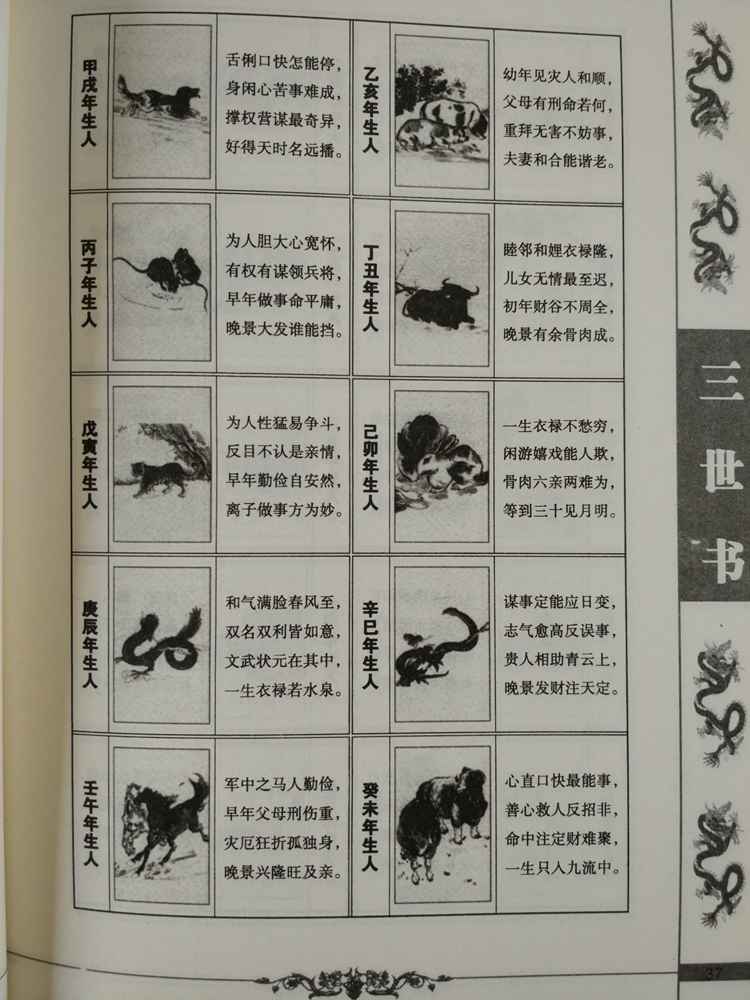 甲戌年生人
舌俐口快怎能停，
身闲心苦事难成，
撑权营谋最奇异，
好得天时名远播。
乙亥年生人
幼年见灾人和顺，
父母有刑命若何，
重拜无害不妨事，
夫妻和合能谐老。
丙子年生人
为人胆大心宽怀，
有权有谋领兵将，
早年做事命平庸，
晚景大发谁能挡。
丁丑年生人
睦邻和娌衣禄隆，
儿女无情最至迟，
初年财谷不周全，
晚景有余骨肉成。
戊寅年生人
为人性猛易争斗，
反目不认是亲情，
早年勤俭自安然，
离子做事方为妙。
己卯年生人
一生衣禄不愁穷，
闲游嬉戏能人欺，
骨肉六亲两难为，
等到三十见月明。
庚辰年生人
和气满脸春风至，
双名双利皆如意，
文武状元在其中，
一生衣禄若水泉。
辛巳年生人
谋事定能应日变，
志气愈高反误事，
贵人相助青云上，
晚景发财注天定。
壬午年生人
军中之马人勤俭，
早年父母刑伤重，
灾厄狂折孤独身，
晚景兴隆旺及亲。
癸未年生人
心直口快最能事，
善心救人反招非，
命中注定财难聚，
一生只入九流中。
三世书
37